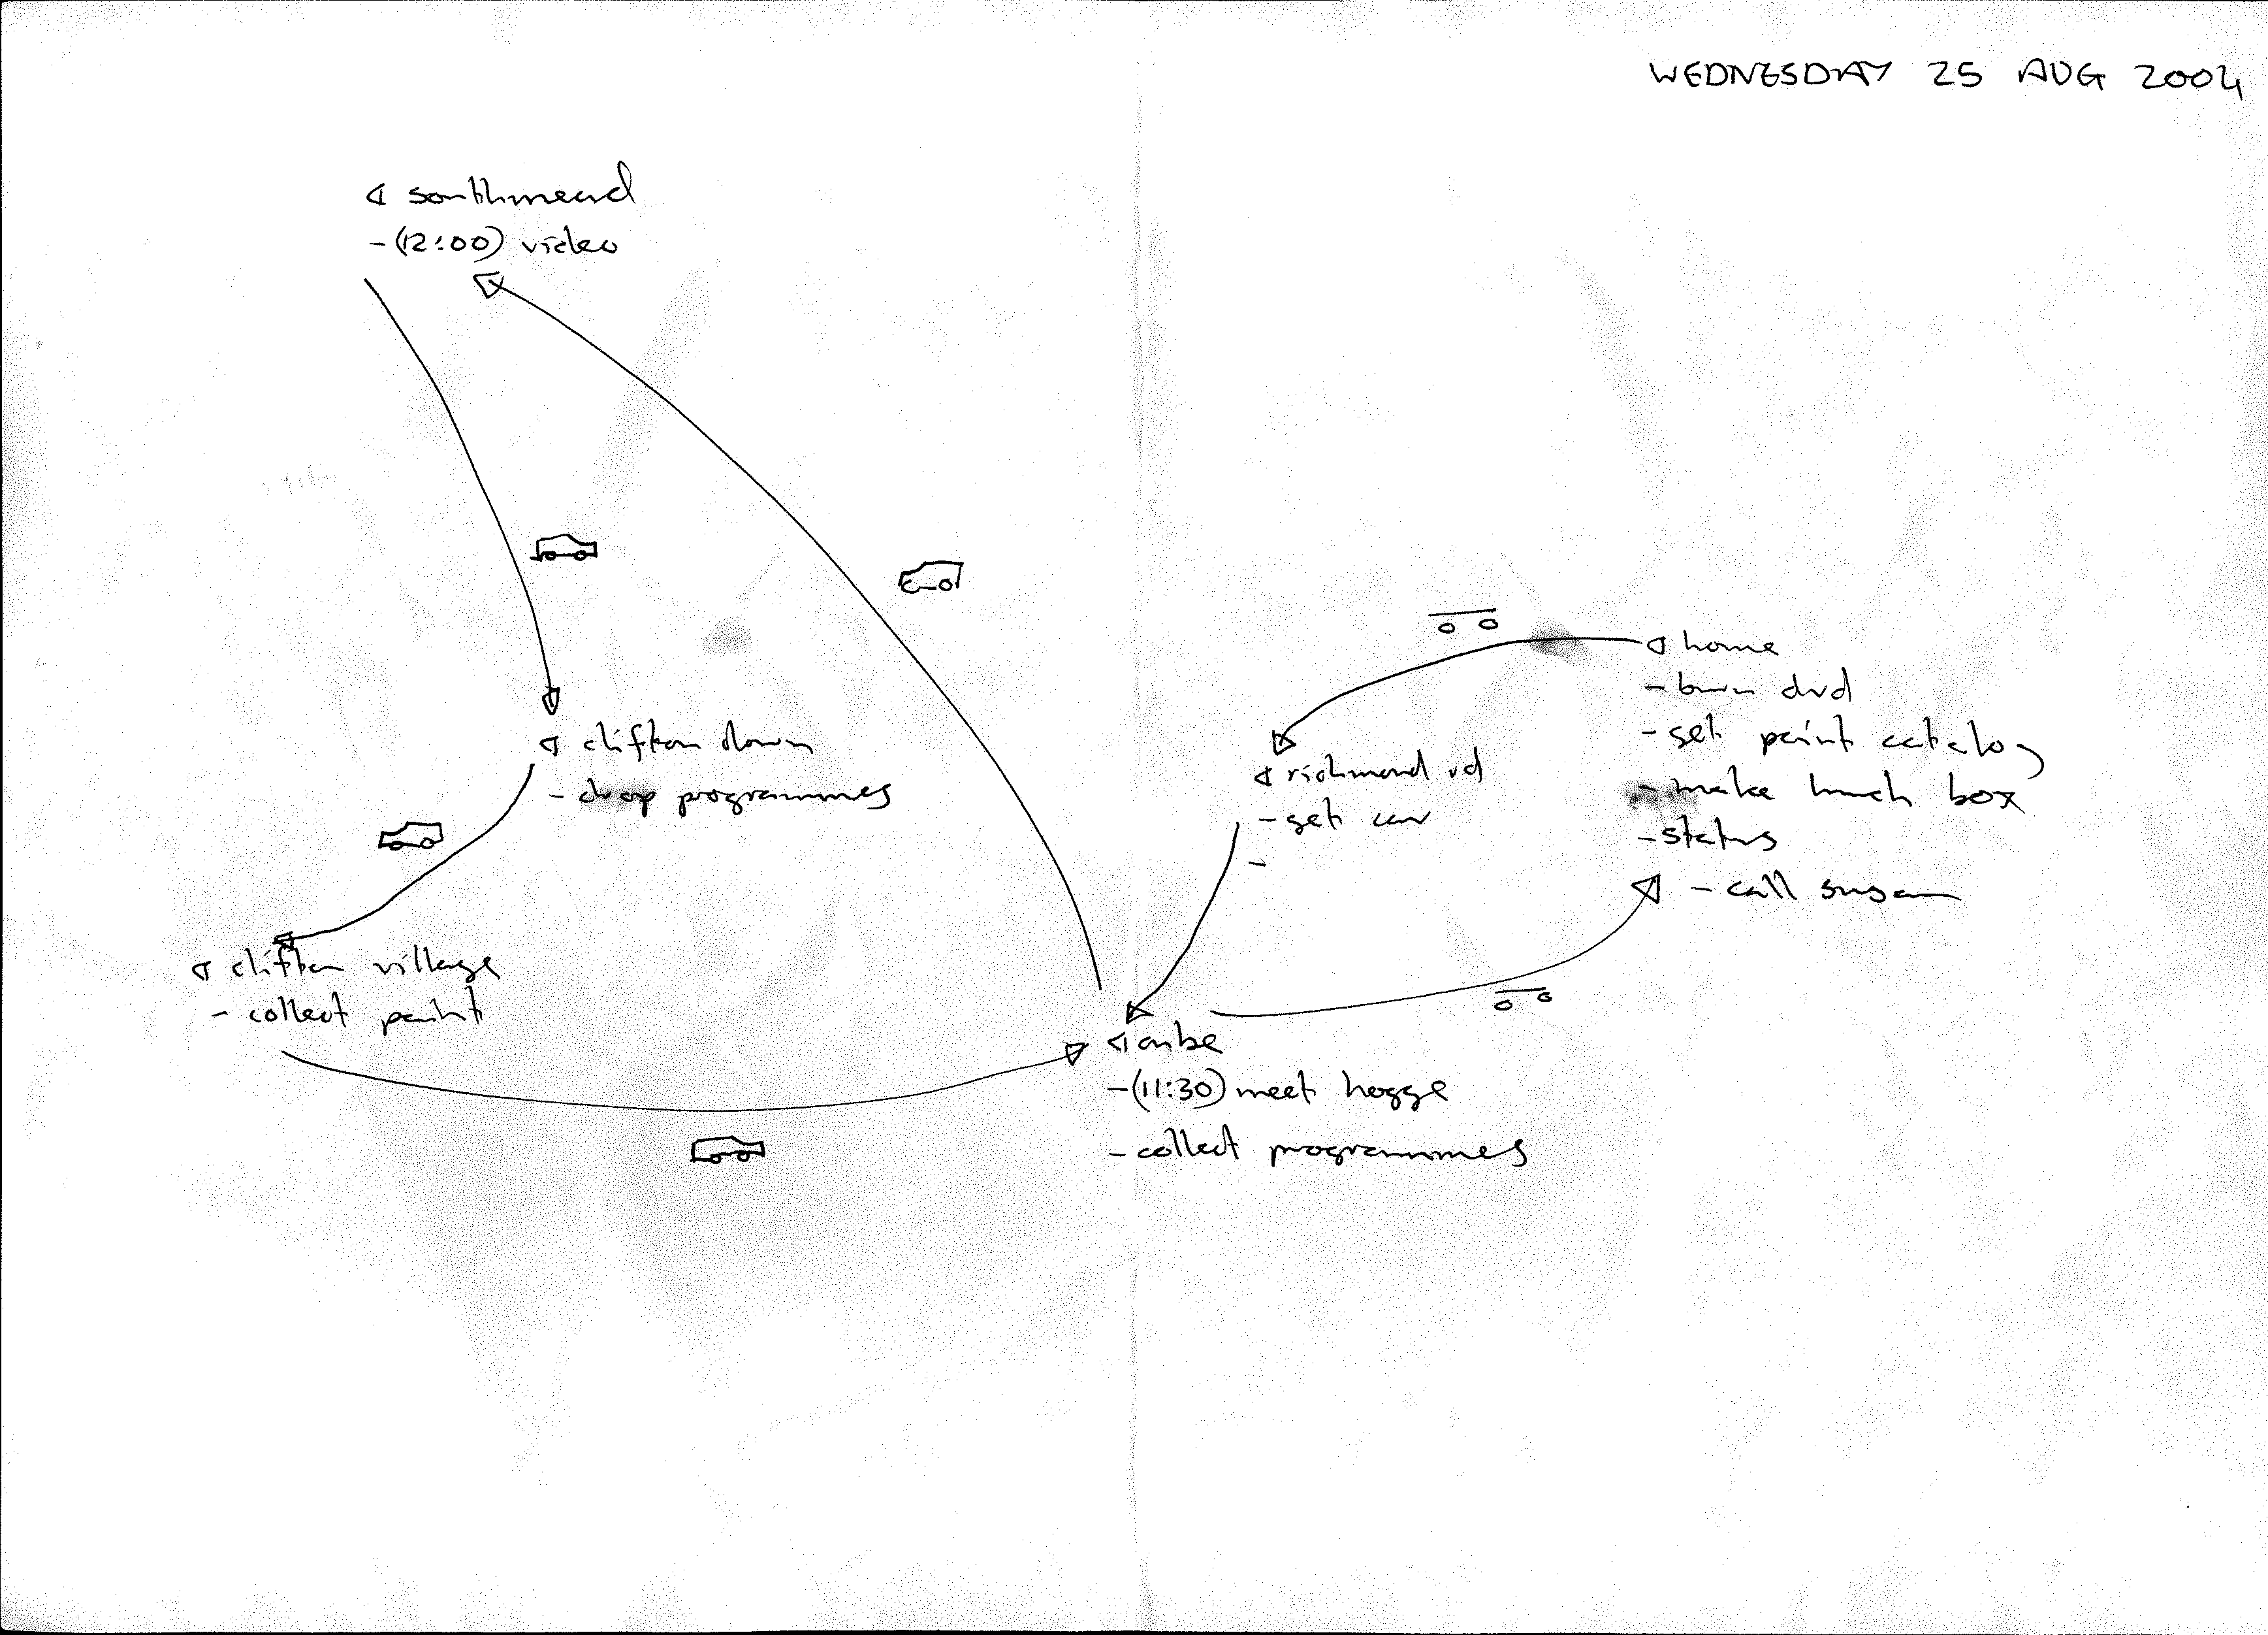 WEDNESDAY 25 AUG 2004
southmead
-(12:00) video
home
- burn dvd
- get paint catalog
- make lunch box
- status
- call susan
richmond rd
- get car
-
clifton down
- drop programmes
clifton village
- collect paint
cube
-(11:30) meet hogge
- collect programmes